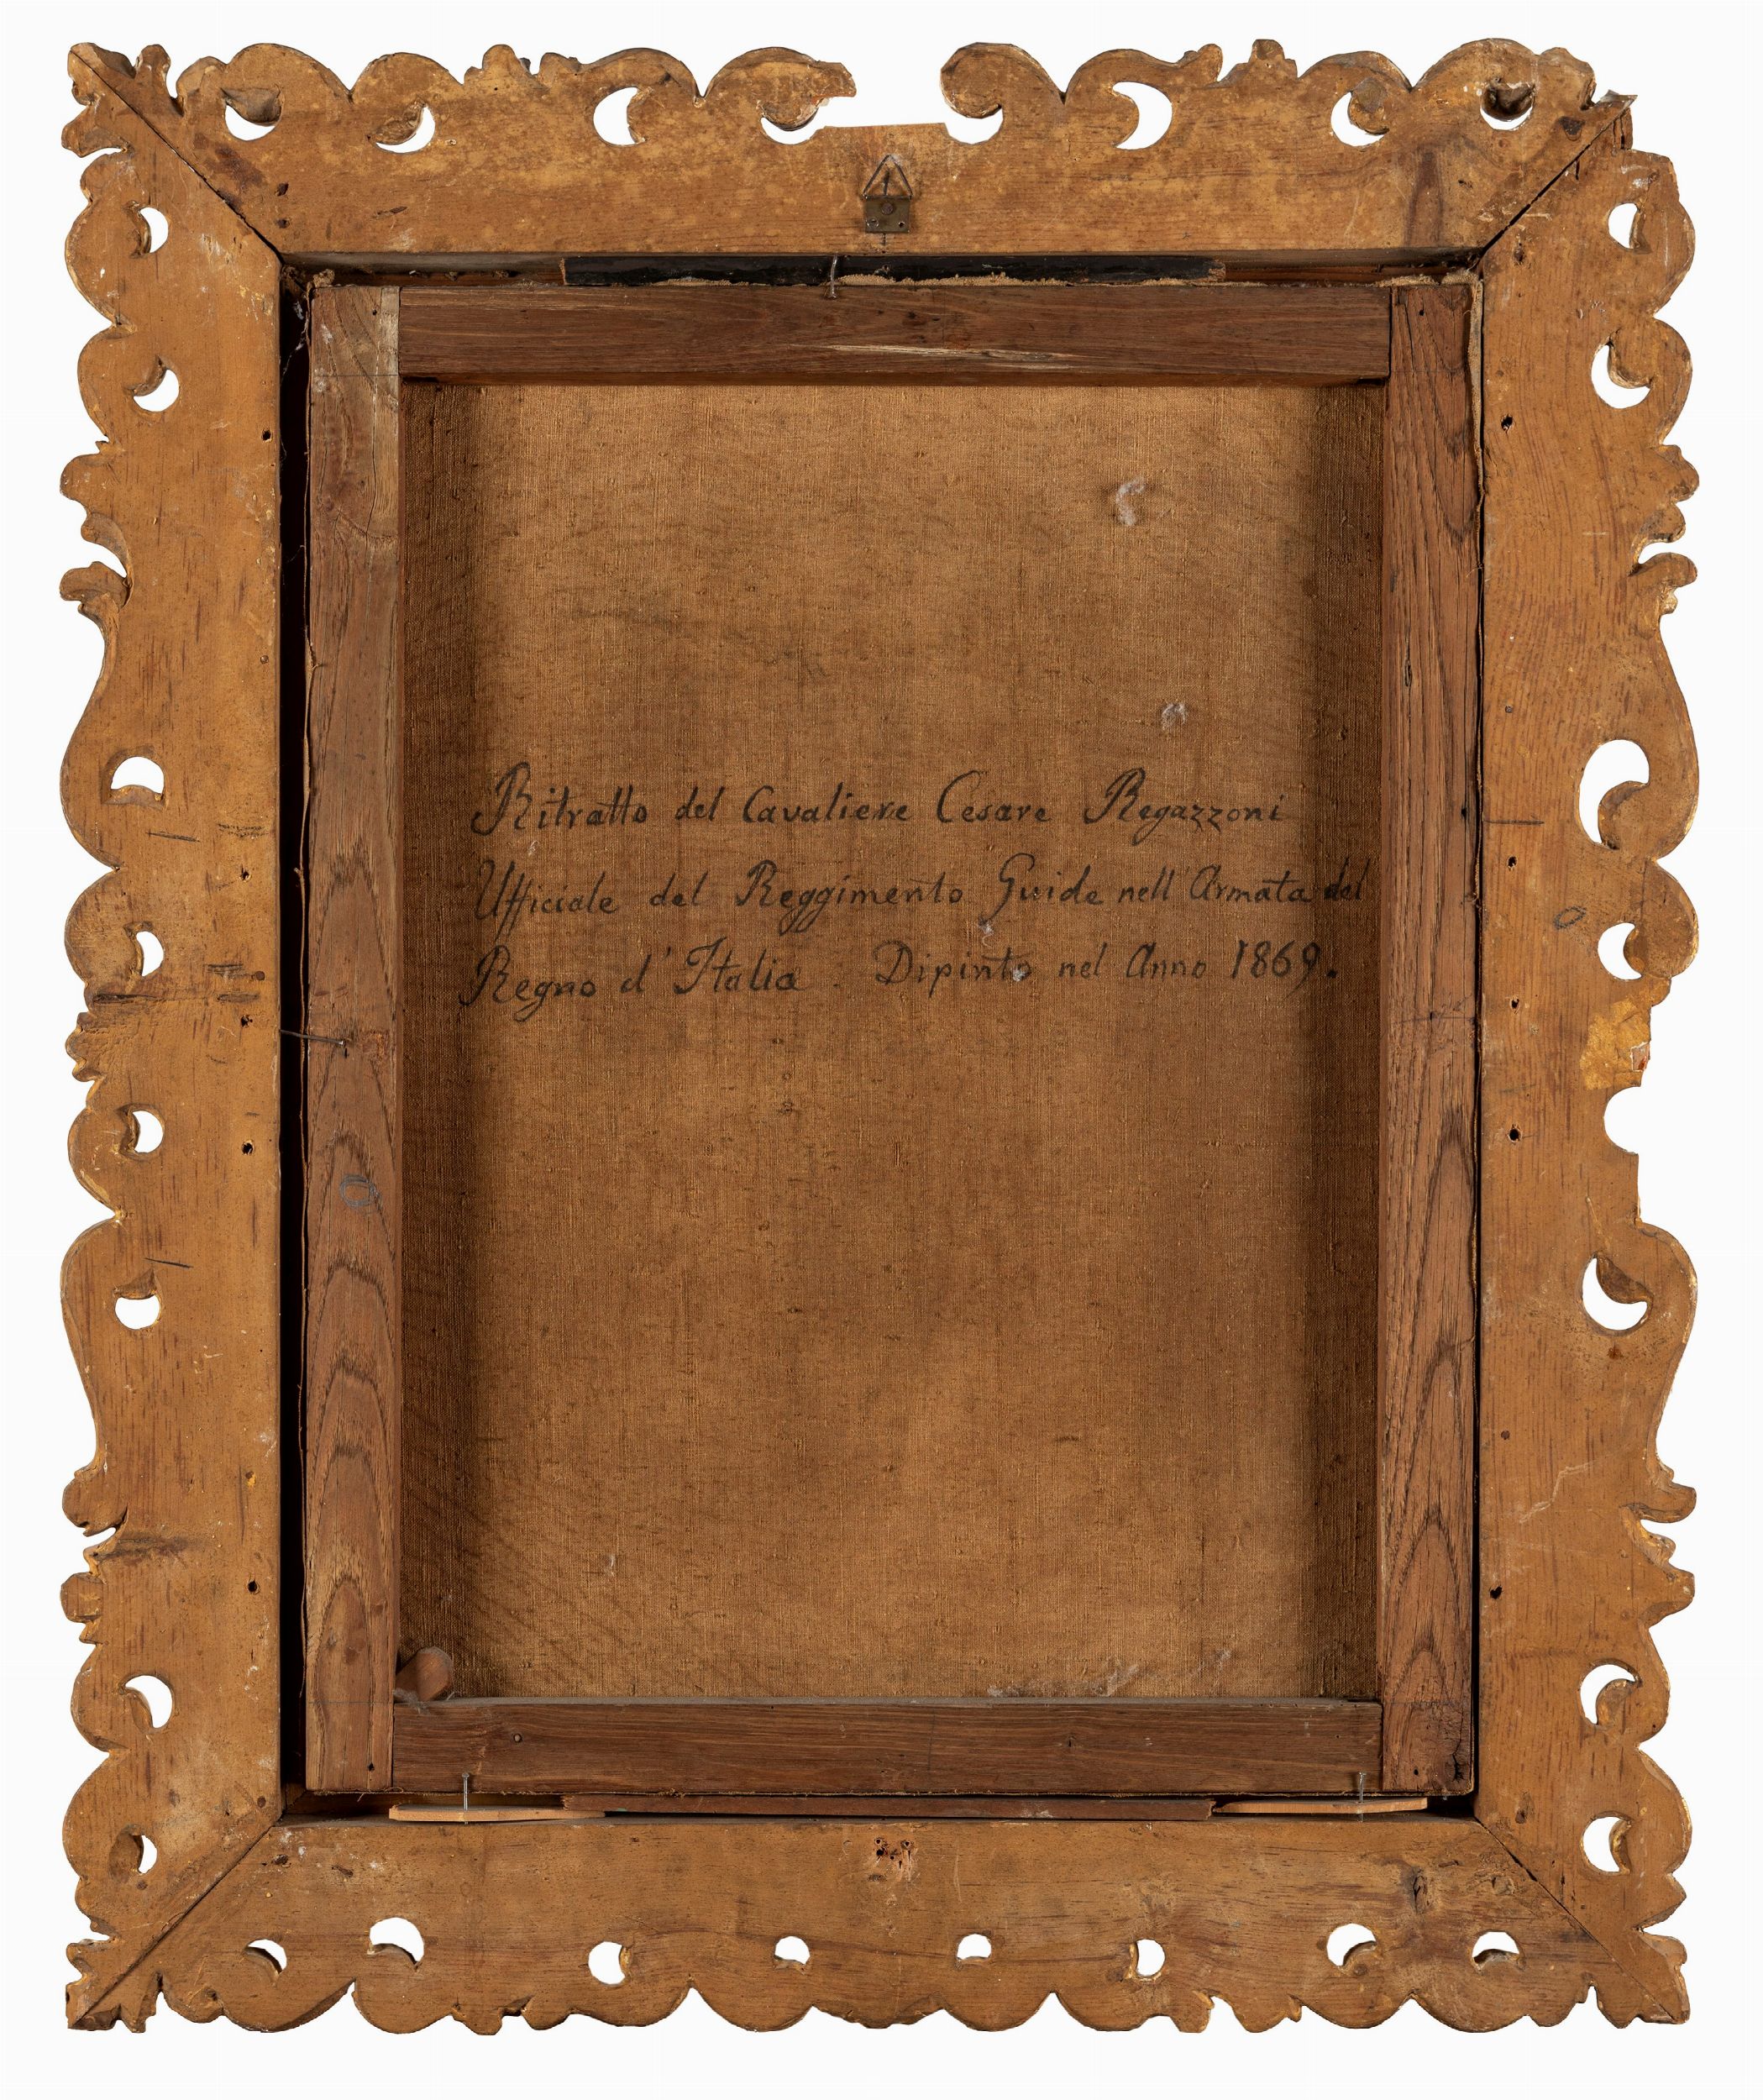 Ritratto del Cavaliere Cesare Regazzoni
Ufficiale del Reggimento Guide nell'Armata del
Regno d'Italia. Dipinto nel Anno 1869.